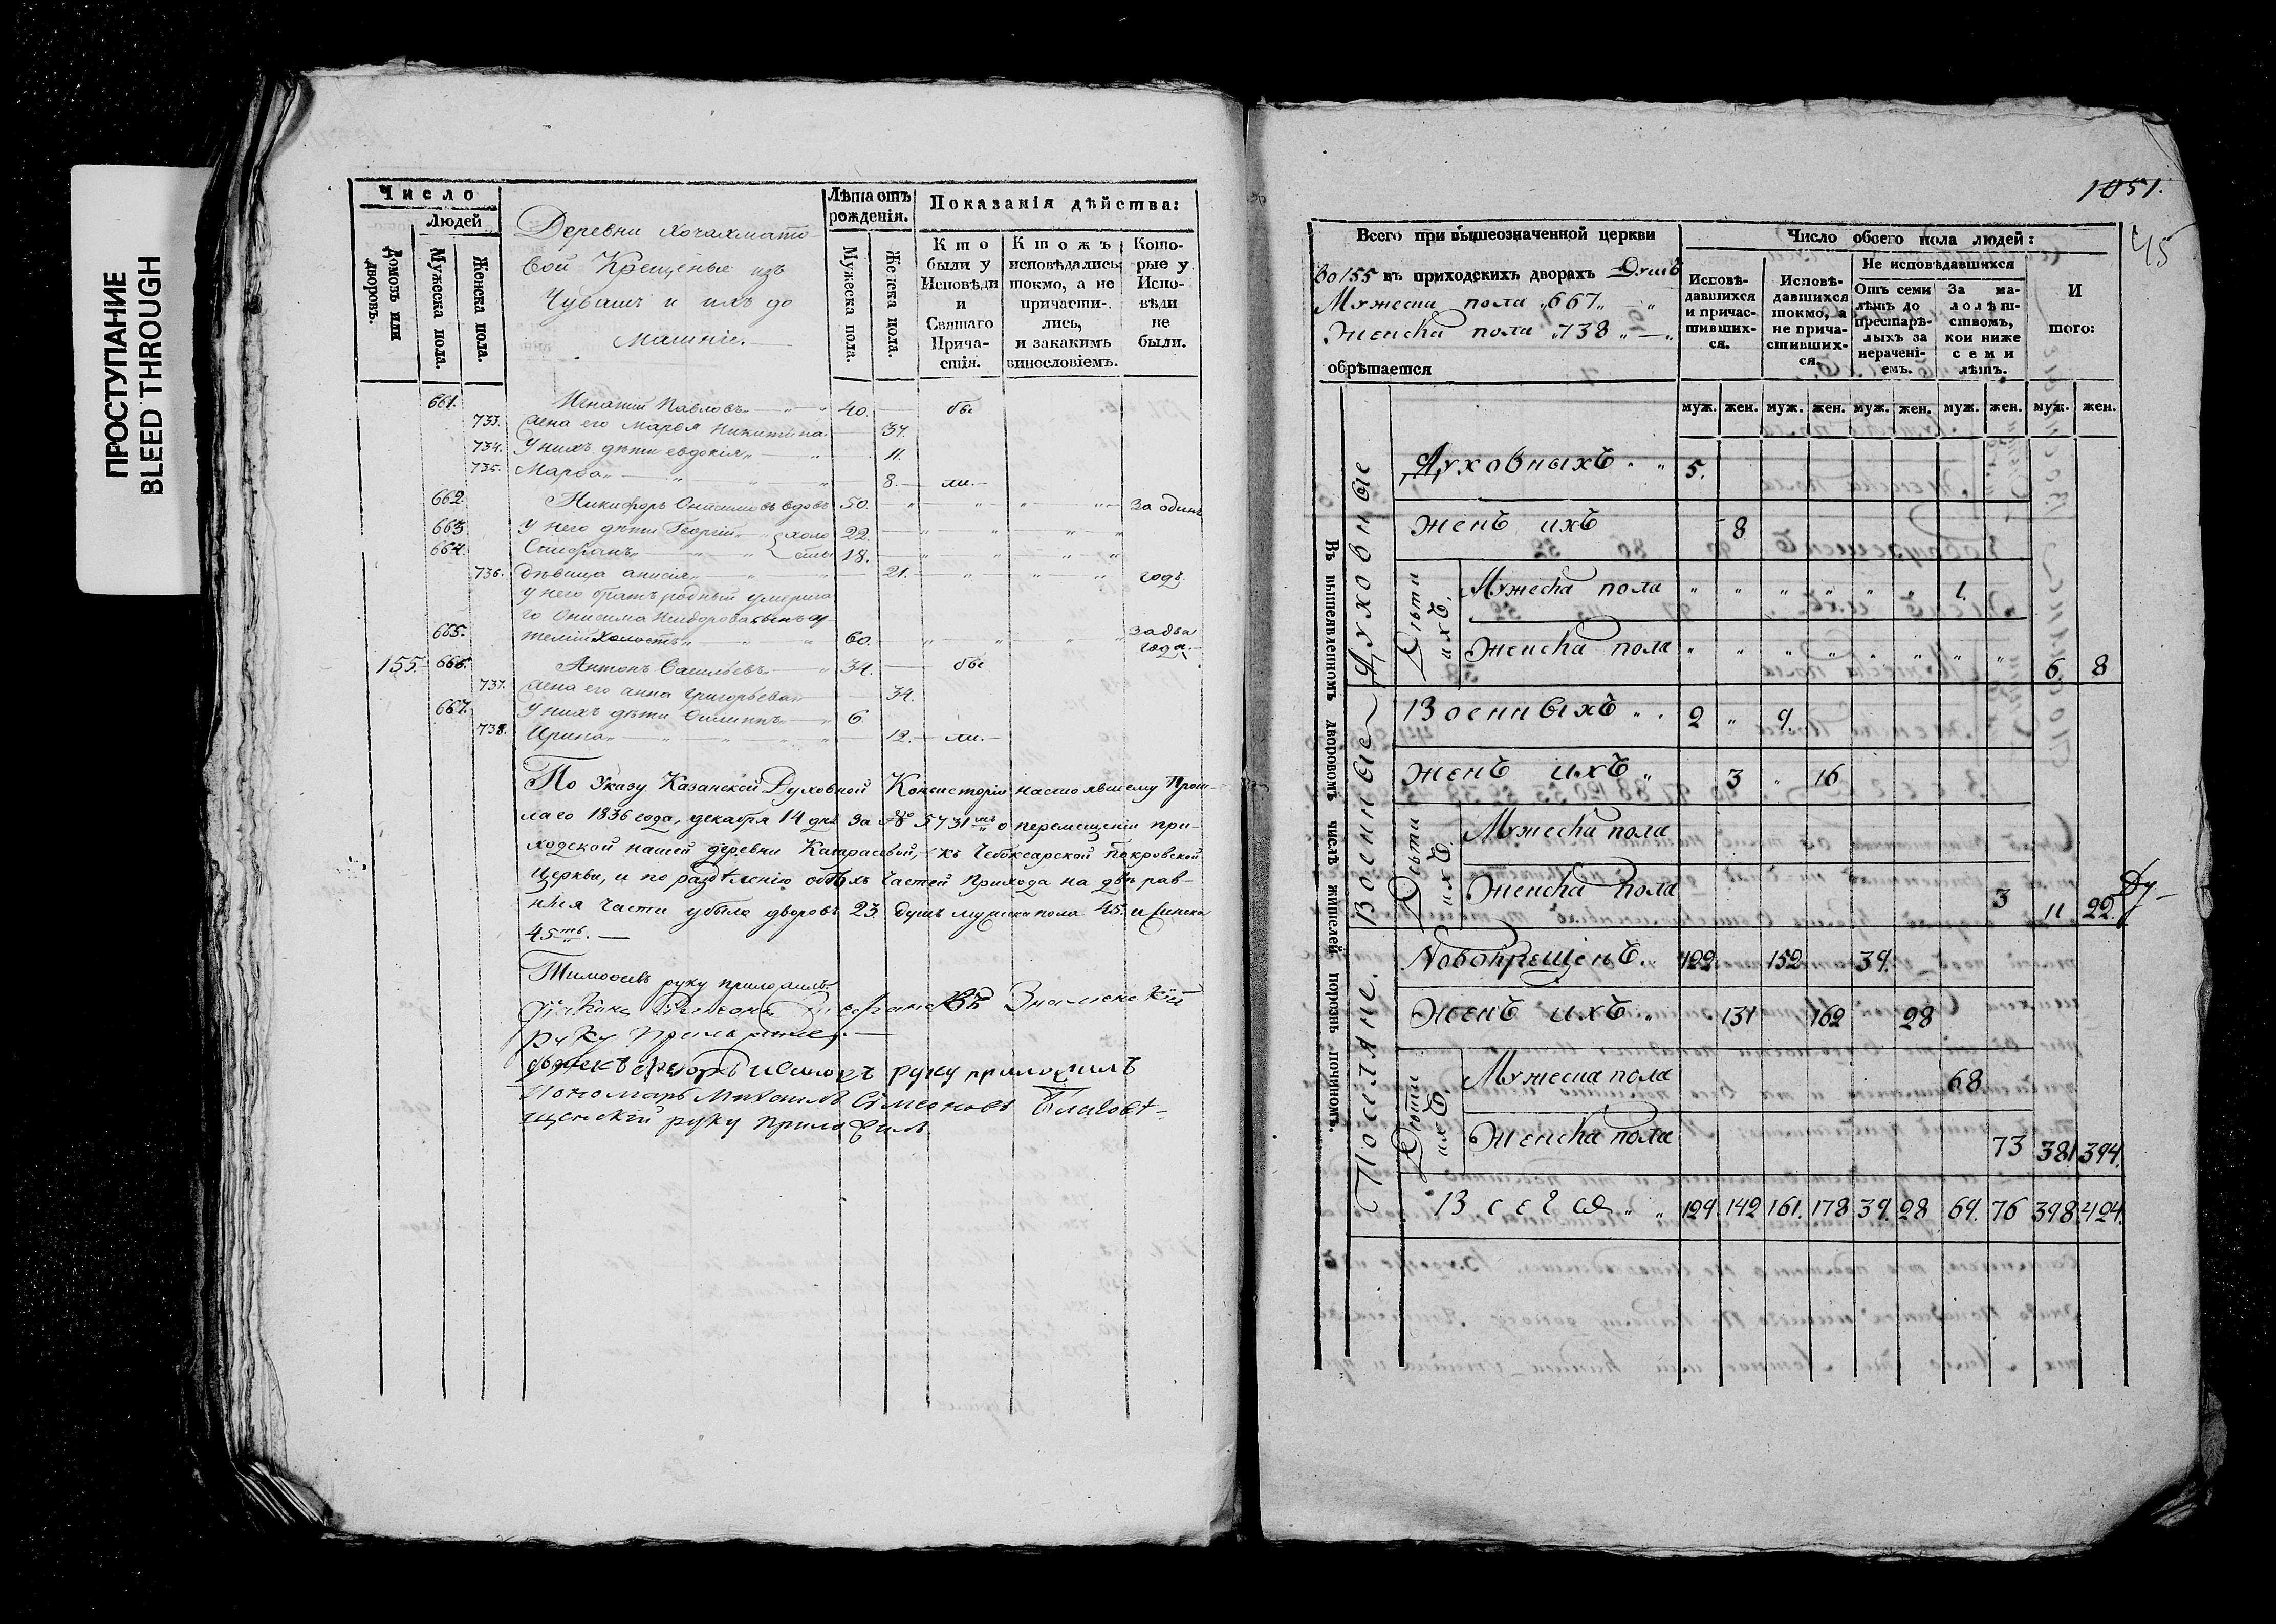 ПРОСТУПАНИЕ
BLEED THROUGH
Число
Людей
Домовъ или дворовъ.
Мужеска пола.
Женска пола.
Деревни Хочахмато
вой Крещеные изъ
Чувашъ и ихъ до
машніе.
Лѣта отъ рожденія.
Мужеска пола.
Женска пола.
Показанія дѣйства:
Кто были у Исповѣди и Святаго Причастія.
Ктожъ исповѣдались токмо, а не причастились, и закакимъ винословіемъ.
Которые у Исповѣди не были.
661. Игнатій Павловъ 40. бы
733. жена его Марья Никитина 37.
734. У нихъ дѣти Евдокія 11.
735. Марѳа 8. ли.
662. Никифоръ Онисимовъ вдовъ 50. За одинъ
663. У него дѣти Георгій холо 22.
664. Стефанъ сты 18.
736. Дѣвица Анисія 21. годъ
У него братъ родный умерша
го Онисима
665. холостъ 60. За два года.
155. 666. Антонъ Васильевъ 34. бы
737. жена его Анна Григорьева 34.
667. У нихъ дѣти Филиппъ 6.
738. Ирина 12. ли.
По Указу Казанской Духовной Консисторіи насто явшему Прош-
лаго 1836 года, декабря 14 дня за № 5731мъ о перемещеніи при-
ходской нашей деревни Катрасевой, къ Чебоксарской Покровской
Церкви, и по раздѣленію обѣхъ частей прихода на двѣ рав-
ныя части убыло дворовъ 23. душъ мужеска пола 45. и женска
45ть.
руку приложилъ
Знаменскій
руку приложилъ.
руку приложилъ
Пономарь Михаилъ Симеоновъ Благовѣ-
щенскій руку приложилъ.
1051.
45
Всего при вышеозначенной церкви
во 155 въ приходскихъ дворахъ Душъ
Мужеска пола 667
Женска пола 738
обрѣтается
Число обоего пола людей:
Исповѣдавшихся и причастившихся.
Исповѣдавшихся токмо, а не причастившихся.
Не исповѣдавшихся
Отъ семи лѣтъ до престарѣлыхъ за нераченіемъ.
За малолѣтствомъ, кои ниже семи лѣтъ.
И того:
муж. жен. муж. жен. муж. жен. муж. жен. муж. жен.
Въ вышеявленномъ дворовомъ числѣ жителей порознь починомъ.
Духовные
Духовныхъ 5.
Женъ ихъ 8
Дѣти ихъ.
Мужеска пола 1.
Женска пола 6. 8
Военные
Военныхъ 2 9.
Женъ ихъ 3 16
Дѣти ихъ
Мужеска пола
Женска пола 3 11 22.
Ду-
Поселяне.
Новокрещенъ. 122 152 39.
Женъ ихъ 131 162 28
Дѣти ихъ.
Мужеска пола 68
Женска пола 73 381 394.
Всего 129 142 161. 178 39. 28 69. 76 398 424.